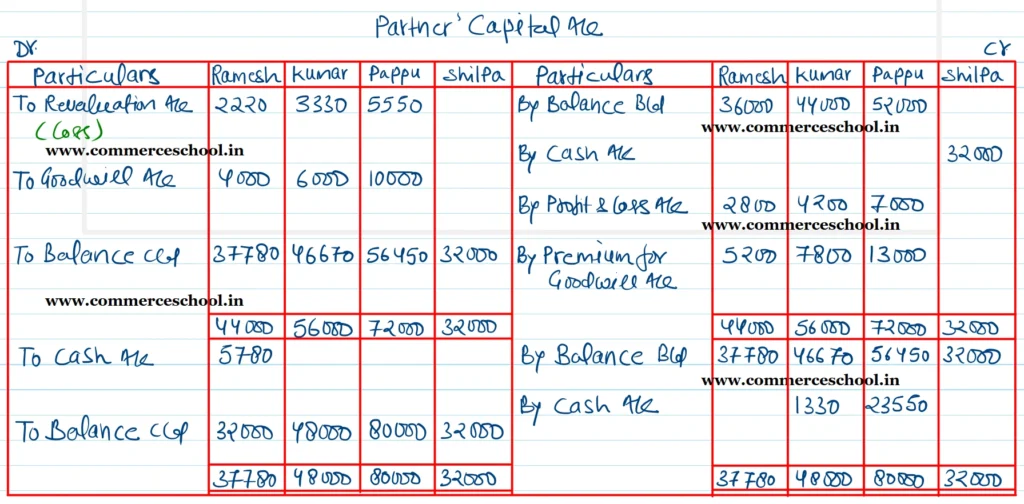 Partner' Capital A/c
Dr. Cr
Particulars Ramesh Kumar Pappu Shilpa Particulars Ramesh Kumar Pappu Shilpa
To Revaluation A/c 2220 3330 5550 By Balance B/d 36000 44000 52000
(Loss) www.commerceschool.in
www.commerceschool.in By Cash A/c 32000
To Goodwill A/c 4000 6000 10000
By Profit & Loss A/c 2800 4200 7000
www.commerceschool.in
To Balance C/d 37780 46670 56450 32000 By Premium for 5200 7800 13000
Goodwill A/c
www.commerceschool.in
44000 56000 72000 32000 44000 56000 72000 32000
To Cash A/c 5780 By Balance B/d 37780 46670 56450 32000
www.commerceschool.in
By Cash A/c 1330 23550
To Balance C/d 32000 48000 80000 32000
37780 48000 80000 32000 37780 48000 80000 32000